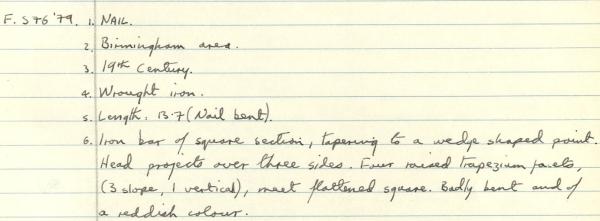 F. S76 '79. 1. NAIL.
2. Birmingham area.
3. 19th Century.
4. Wrought iron.
5. Length: 13.7 (Nail bent).
6. Iron bar of square section, tapering to a wedge shaped point.
Head projects over three sides. Four raised trapezium facets,
(3 slope, 1 vertical), meet flattened square. Badly bent and of
a reddish colour.